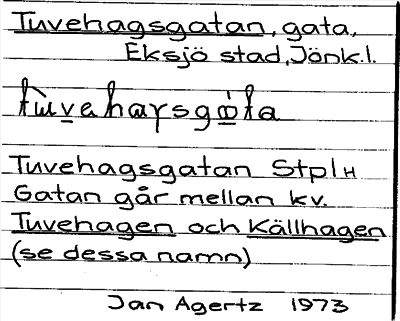 Tuvehagsgatan, gata,
Eksjö stad, Jönk.l.
Tuvehagsgatan StplH
Gatan går mellan kv.
Tuvehagen och Källhagen
(se dessa namn)
Jan Agertz 1973